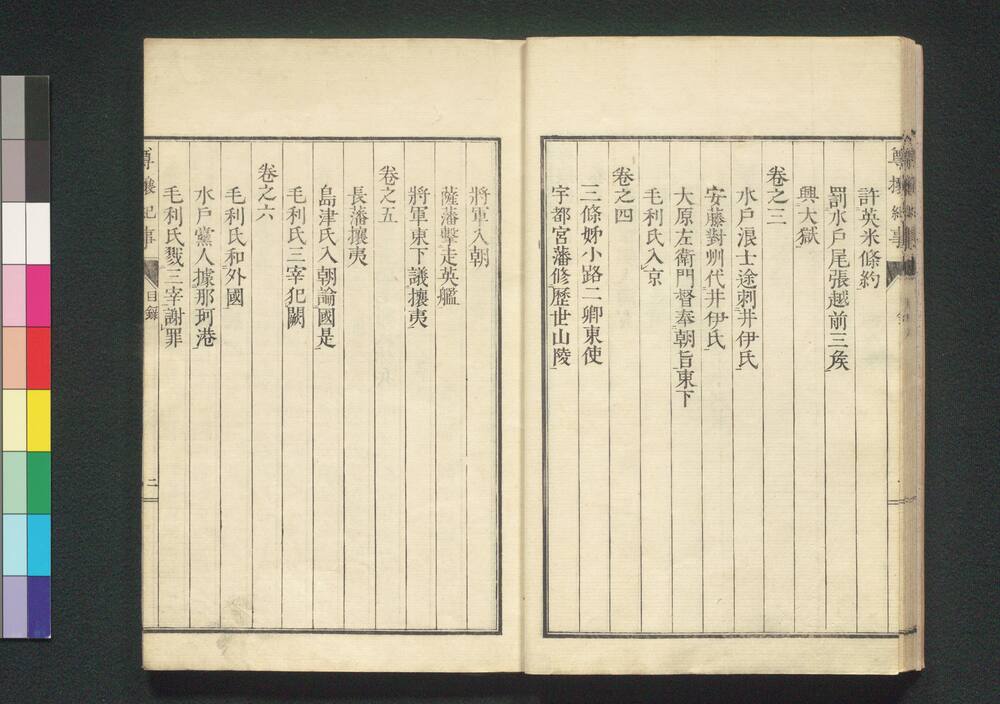 許英米條約
罰水戸尾張越前三矦
興大獄
卷之三
水戸浪士途刺井伊氏
安藤對州代井伊氏
大原左衛門督奉朝旨東下
毛利氏入京
卷之四
三條姊小路二卿東使
宇都宮藩修歷世山陵
將軍入朝
薩藩擊走英艦
將軍東下議攘夷
卷之五
長藩攘夷
島津氏入朝論國是
毛利氏三宰犯闕
卷之六
毛利氏和外國
水戸黨人據那珂港
毛利氏戮三宰謝罪
尊攘紀事 目錄 二